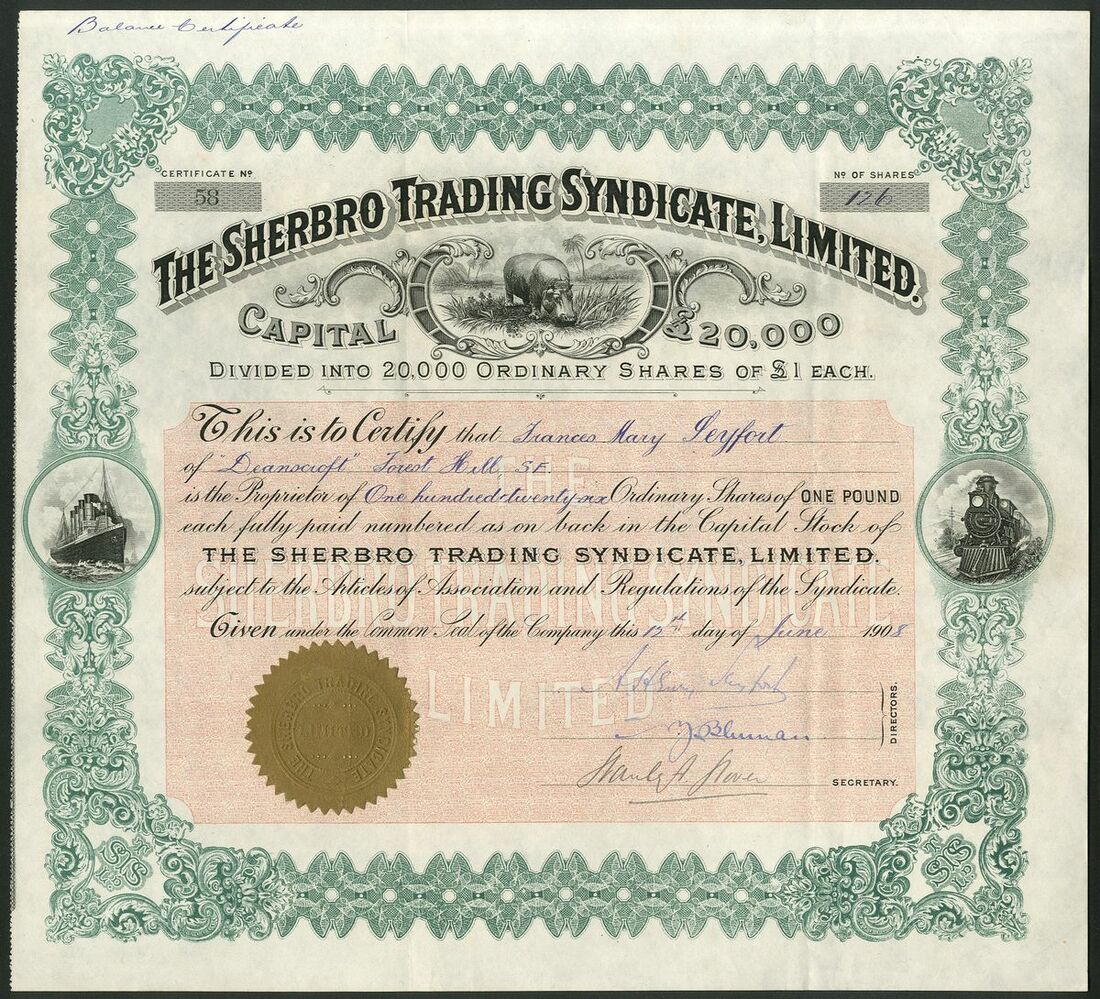 Balance Certificate
CERTIFICATE Nº
58
Nº OF SHARES
126
THE SHERBRO TRADING SYNDICATE, LIMITED.
CAPITAL £20,000
DIVIDED INTO 20,000 ORDINARY SHARES OF £1 EACH.
This is to Certify that Frances Mary Seyfort
of "Deanscroft" Forest Hill, S.E.
is the Proprietor of One hundred & twenty six Ordinary Shares of ONE POUND
each fully paid numbered as on back in the Capital Stock of
THE SHERBRO TRADING SYNDICATE, LIMITED.
subject to the Articles of Association and Regulations of the Syndicate.
Given under the Common Seal of the Company this 12th day of June 1908
THE
SHERBRO TRADING SYNDICATE
LIMITED
THE SHERBRO TRADING SYNDICATE
LIMITED
DIRECTORS.
SECRETARY.